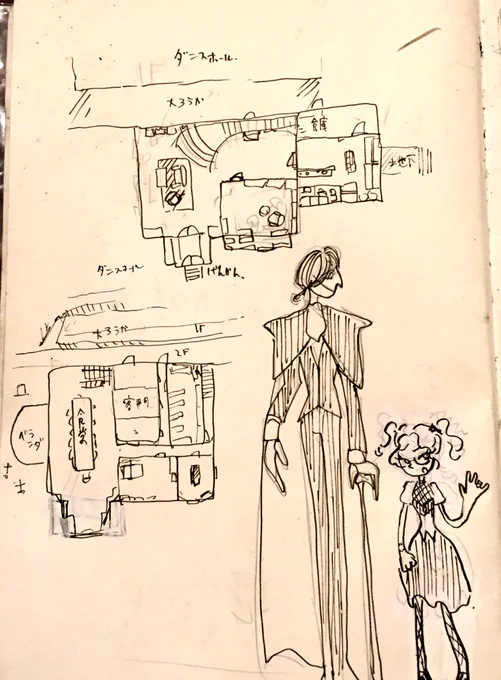 ダンスホール
大ろうか
倉庫
地下
げんかん
ダンスホール
大ろうか
1F
2F
客間
ベランダ